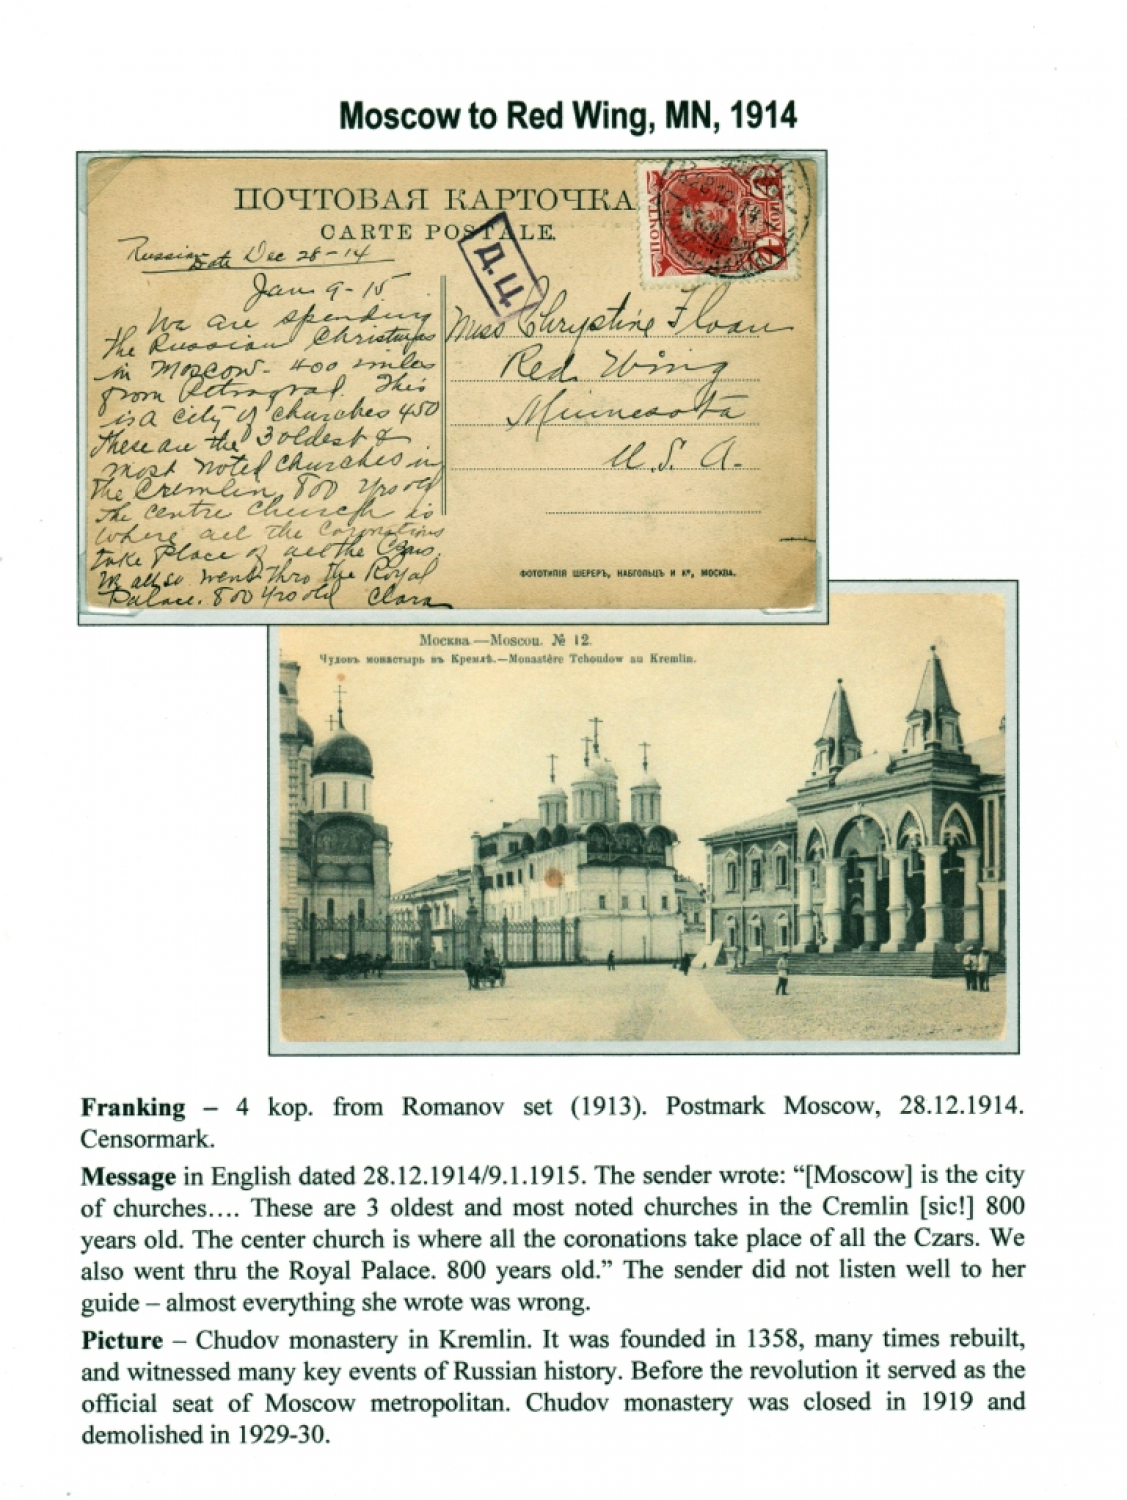 Moscow to Red Wing, MN, 1914
ПОЧТОВАЯ КАРТОЧКА
CARTE POSTALE.
ПОЧТА
4
КОП
28 12 14
Д.Ц
Russian Date Dec 28-14
Jan 9-15
We are spending
the Russian Christmas
in Moscow - 400 miles
from Petrograd. This
is a city of churches 450
These are the 3 oldest &
most noted churches in
the Cremlin 800 yrs old
The centre Church is
where all the Coronations
take place of all the Czars.
We also went thro the Royal
Palace. 800 yrs old Clara
Miss Chrystine Floan
Red Wing
Minnesota
U.S.A.
ФОТОТИПІЯ ШЕРЕРЪ, НАБГОЛЬЦЪ И Кº, МОСКВА.
Москва.—Moscou. № 12.
Чудовъ монастырь въ Кремлѣ.—Monastère Tchoudow au Kremlin.
Franking – 4 kop. from Romanov set (1913). Postmark Moscow, 28.12.1914.
Censormark.
Message in English dated 28.12.1914/9.1.1915. The sender wrote: “[Moscow] is the city
of churches…. These are 3 oldest and most noted churches in the Cremlin [sic!] 800
years old. The center church is where all the coronations take place of all the Czars. We
also went thru the Royal Palace. 800 years old.” The sender did not listen well to her
guide – almost everything she wrote was wrong.
Picture – Chudov monastery in Kremlin. It was founded in 1358, many times rebuilt,
and witnessed many key events of Russian history. Before the revolution it served as the
official seat of Moscow metropolitan. Chudov monastery was closed in 1919 and
demolished in 1929-30.